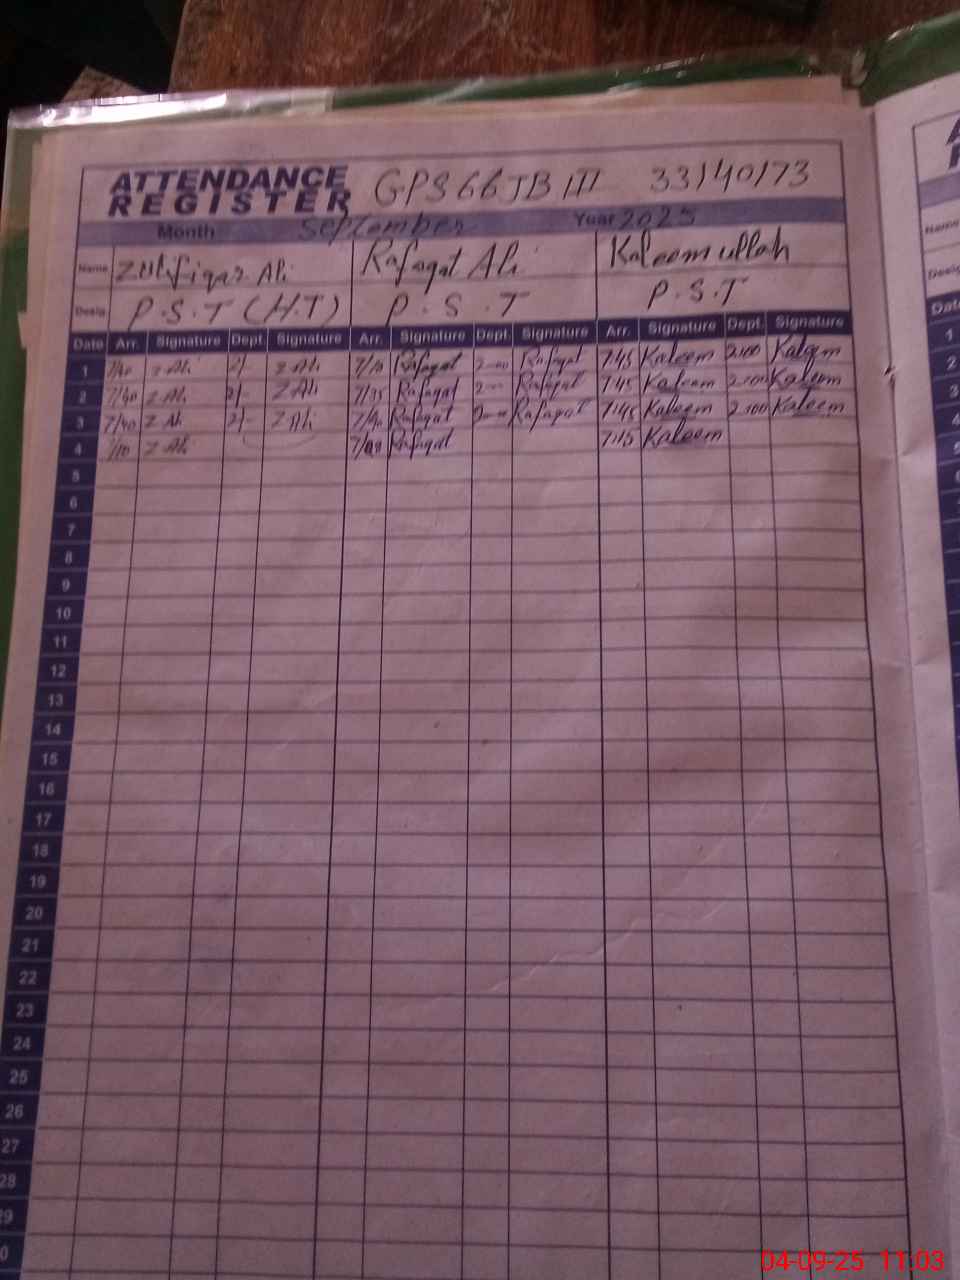 ATTENDANCE REGISTER GPS 66 JB III 33/40/73
Month September Year 2025
Name Zulifiqar Ali Rafaqat Ali Kaleem ullah
Desig P.S.T (H.T) P.S.T P.S.T
Date Arr. Signature Dept. Signature Arr. Signature Dept. Signature Arr. Signature Dept. Signature
1 Z Ali 2/- Z Ali Rafaqat Rafaqat 7:45 Kaleem 2:00 Kaleem
2 7/40 Z Ali 2/- Z Ali 7/35 Rafaqat Rafaqat 7:45 Kaleem 2:00 Kaleem
3 7/40 Z Ali 2/- Z Ali 7/40 Rafaqat Rafaqat 7:45 Kaleem 2:00 Kaleem
4 Z Ali Rafaqat Kaleem
5
6
7
8
9
10
11
12
13
14
15
16
17
18
19
20
21
22
23
24
25
26
27
28
29
Name
Desig
Date
1
2
3
4
04-09-25 11:03